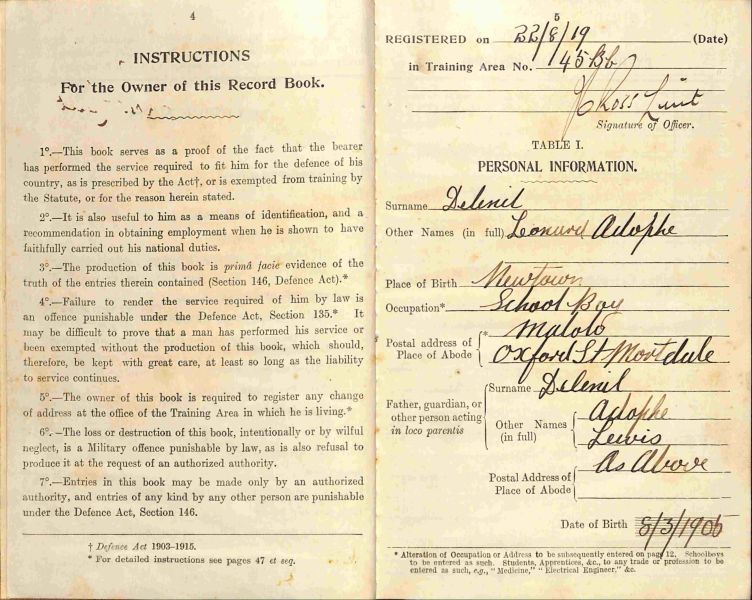 4
INSTRUCTIONS
For the Owner of this Record Book.
1°.—This book serves as a proof of the fact that the bearer
has performed the service required to fit him for the defence of his
country, as is prescribed by the Act†, or is exempted from training by
the Statute, or for the reason herein stated.
2°.—It is also useful to him as a means of identification, and a
recommendation in obtaining employment when he is shown to have
faithfully carried out his national duties.
3°.—The production of this book is primâ facie evidence of the
truth of the entries therein contained (Section 146, Defence Act).*
4°.—Failure to render the service required of him by law is
an offence punishable under the Defence Act, Section 135.* It
may be difficult to prove that a man has performed his service or
been exempted without the production of this book, which should,
therefore, be kept with great care, at least so long as the liability
to service continues.
5°.—The owner of this book is required to register any change
of address at the office of the Training Area in which he is living.*
6°.—The loss or destruction of this book, intentionally or by wilful
neglect, is a Military offence punishable by law, as is also refusal to
produce it at the request of an authorized authority.
7°.—Entries in this book may be made only by an authorized
authority, and entries of any kind by any other person are punishable
under the Defence Act, Section 146.
† Defence Act 1903-1915.
* For detailed instructions see pages 47 et seq.
5
REGISTERED on 22/8/19 (Date)
in Training Area No. 45Bb
Ross Lieut
Signature of Officer.
TABLE I.
PERSONAL INFORMATION.
Surname Delenil
Other Names (in full) Leonard Adophe
Place of Birth Newtown
Occupation* School Boy
Postal address of Place of Abode * Maloto
Oxford St Mortdale
Father, guardian, or other person acting in loco parentis
Surname Delenil
Other Names (in full) Adophe
Lewis
Postal Address of Place of Abode As Above
Date of Birth 8/3/1905
* Alteration of Occupation or Address to be subsequently entered on page 12. Schoolboys
to be entered as such. Students, Apprentices, &c., to any trade or profession to be
entered as such, e.g., "Medicine," "Electrical Engineer," &c.